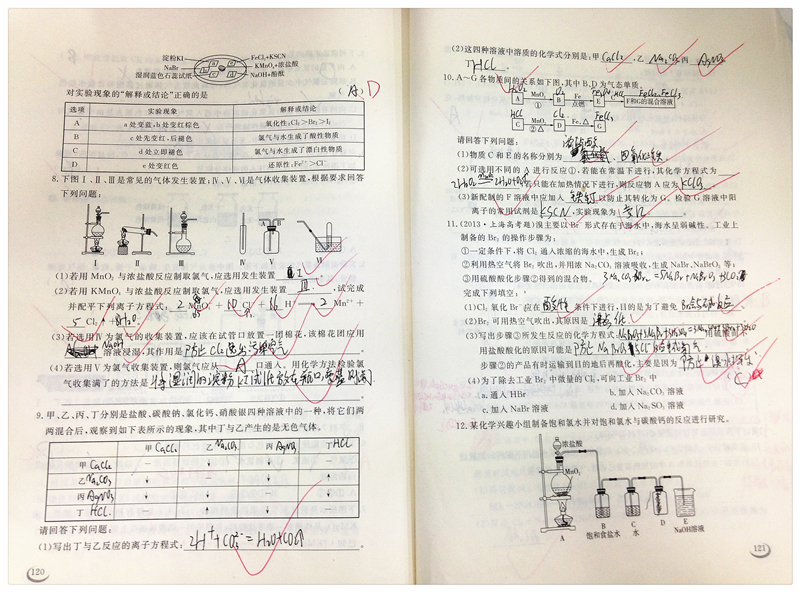 淀粉KI
NaBr
湿润蓝色石蕊试纸
FeCl₂+KSCN
KMnO₄+浓盐酸
NaOH+酚酞
对实验现象的“解释或结论”正确的是 (A) D
选项 实验现象 解释或结论
A a处变蓝,b处变红棕色 氧化性:Cl₂>Br₂>I₂
B c处先变红,后褪色 氯气与水生成了酸性物质
C d处立即褪色 氯气与水生成了漂白性物质
D e处变红色 还原性:Fe²⁺>Cl⁻
8. 下图Ⅰ、Ⅱ、Ⅲ是常见的气体发生装置;Ⅳ、Ⅴ、Ⅵ是气体收集装置,根据要求回答
下列问题:
Ⅰ Ⅱ Ⅲ Ⅳ Ⅴ Ⅵ
(1)若用MnO₂与浓盐酸反应制取氯气,应选用发生装置 Ⅰ
(2)若用KMnO₄与浓盐酸反应制取氯气,应选用发生装置 Ⅲ ,试完成
并配平下列离子方程式: 2 MnO₄⁻+ 10 Cl⁻+ 16 H⁺ 2 Mn²⁺+
5 Cl₂↑+ 8H₂O
(3)若选用Ⅳ为氯气的收集装置,应该在试管口放置一团棉花,该棉花团应用
NaOH 溶液浸湿,其作用是 防止Cl₂逸出污染空气
(4)若选用Ⅴ为氯气收集装置,则氯气应从 A 口通入。用化学方法检验氯
气收集满了的方法是 将湿润的淀粉KI试纸放在瓶口,变蓝则满
9. 甲、乙、丙、丁分别是盐酸、碳酸钠、氯化钙、硝酸银四种溶液中的一种,将它们两
两混合后,观察到如下表所示的现象,其中丁与乙产生的是无色气体。
甲CaCl₂ 乙Na₂CO₃ 丙AgNO₃ 丁HCl
甲CaCl₂ — ↓ ↓ —
乙Na₂CO₃ ↓ — ↓ ↑
丙AgNO₃ ↓ ↓ — ↓
丁HCl — ↑ ↓ —
请回答下列问题:
(1)写出丁与乙反应的离子方程式: 2H⁺+CO₃²⁻=H₂O+CO₂↑
120
(2)这四种溶液中溶质的化学式分别是:甲 CaCl₂ 、乙 Na₂CO₃ 丙 AgNO₃
丁 HCl
10. A～G各物质间的关系如下图,其中B、D为气态单质。
H₂O₂ O₂ HCl FeCl₂ FeCl₃
A MnO₂ ① B Fe 点燃 E F和G的混合溶液
HCl Cl₂ FeCl₃
C MnO₂ ②△ D Fe △ G
请回答下列问题:
(1)物质C和E的名称分别为 浓盐酸 、四氧化三铁
(2)可选用不同的A进行反应①,若能在常温下进行,其化学方程式为
2H₂O₂ 2H₂O+O₂↑ ;若只能在加热情况下进行,则反应物A应为 KClO₃
(3)新配制的F溶液中应加入 铁钉 以防止其转化为G。检验G溶液中阳
离子的常用试剂是 KSCN ,实验现象为 变红
11. (2013·上海高考题)溴主要以Br⁻形式存在于海水中,海水呈弱碱性。工业上
制备的Br₂的操作步骤为:
①一定条件下,将Cl₂通入浓缩的海水中,生成Br₂;
②利用热空气将Br₂吹出,并用浓Na₂CO₃溶液吸收,生成NaBr、NaBrO₃等;
③用硫酸酸化步骤②得到的混合物。
完成下列填空:
(1)Cl₂氧化Br⁻应在 酸性 条件下进行,目的是为了避免
(2)Br₂可用热空气吹出,其原因是
(3)写出步骤②所发生反应的化学方程式: 用硫酸而不
用盐酸酸化的原因可能是
步骤②的产品有时运输到目的地后再酸化,主要是因为
(4)为了除去工业Br₂中微量的Cl₂,可向工业Br₂中 C
a. 通入HBr b. 加入Na₂CO₃溶液
c. 加入NaBr溶液 d. 加入Na₂SO₃溶液
12. 某化学兴趣小组制备饱和氯水并对饱和氯水与碳酸钙的反应进行研究。
浓盐酸
MnO₂
A B C D E
饱和食盐水 水 NaOH溶液
121